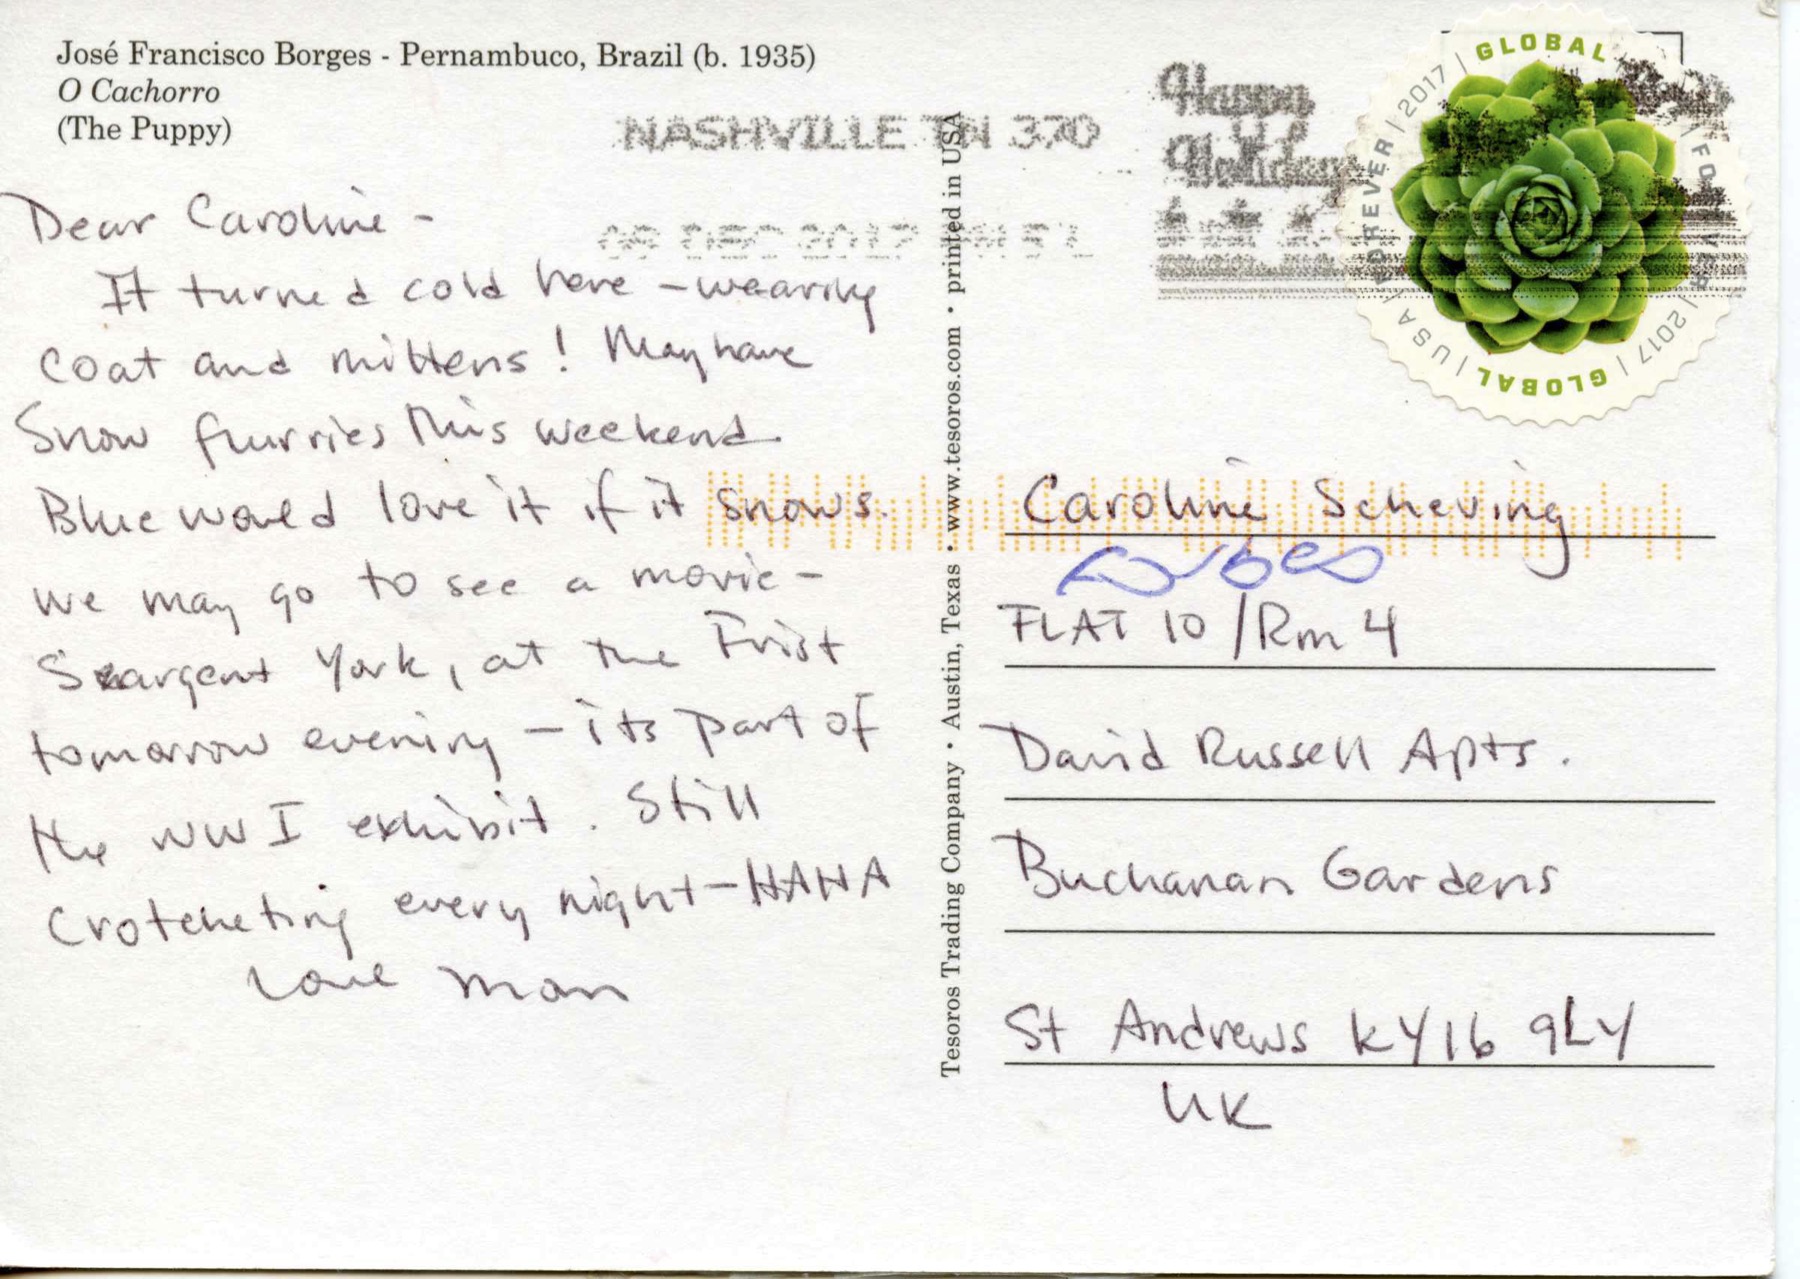 José Francisco Borges - Pernambuco, Brazil (b. 1935)
O Cachorro
(The Puppy)
NASHVILLE TN 370
08 DEC 2017 PM 5 L
Happy
Holidays
GLOBAL | FOREVER | 2017 | GLOBAL | USA | FOREVER | 2017
Dear Caroline -
It turned cold here - wearing
coat and mittens! May have
Snow flurries this weekend.
Blue would love it if it snows.
We may go to see a movie -
Seargent York, at the Frist
tomorrow evening - its part of
the WW I exhibit. Still
Crotcheting every night - HAHA
Love Mom
Tesoros Trading Company • Austin, Texas • www.tesoros.com • printed in USA
Caroline Scheving
FLAT 10 / Rm 4
David Russell Apts.
Buchanan Gardens
St Andrews KY16 9LY
UK